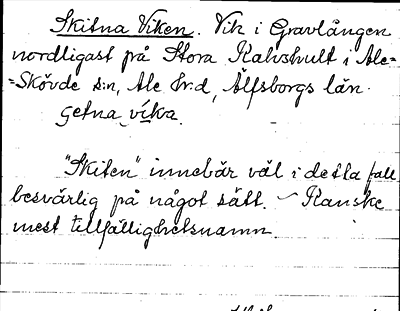 Skitna Viken. Vik i Gravlången
nordligast på Stora Kahshult i Ale-
=Skövde s:n, Ale hr:d, Älfsborgs län.
getna víka.
"Skiten" innebär väl i detta fall
besvärlig på något sätt. – Kanske
mest tillfällighetsnamn.